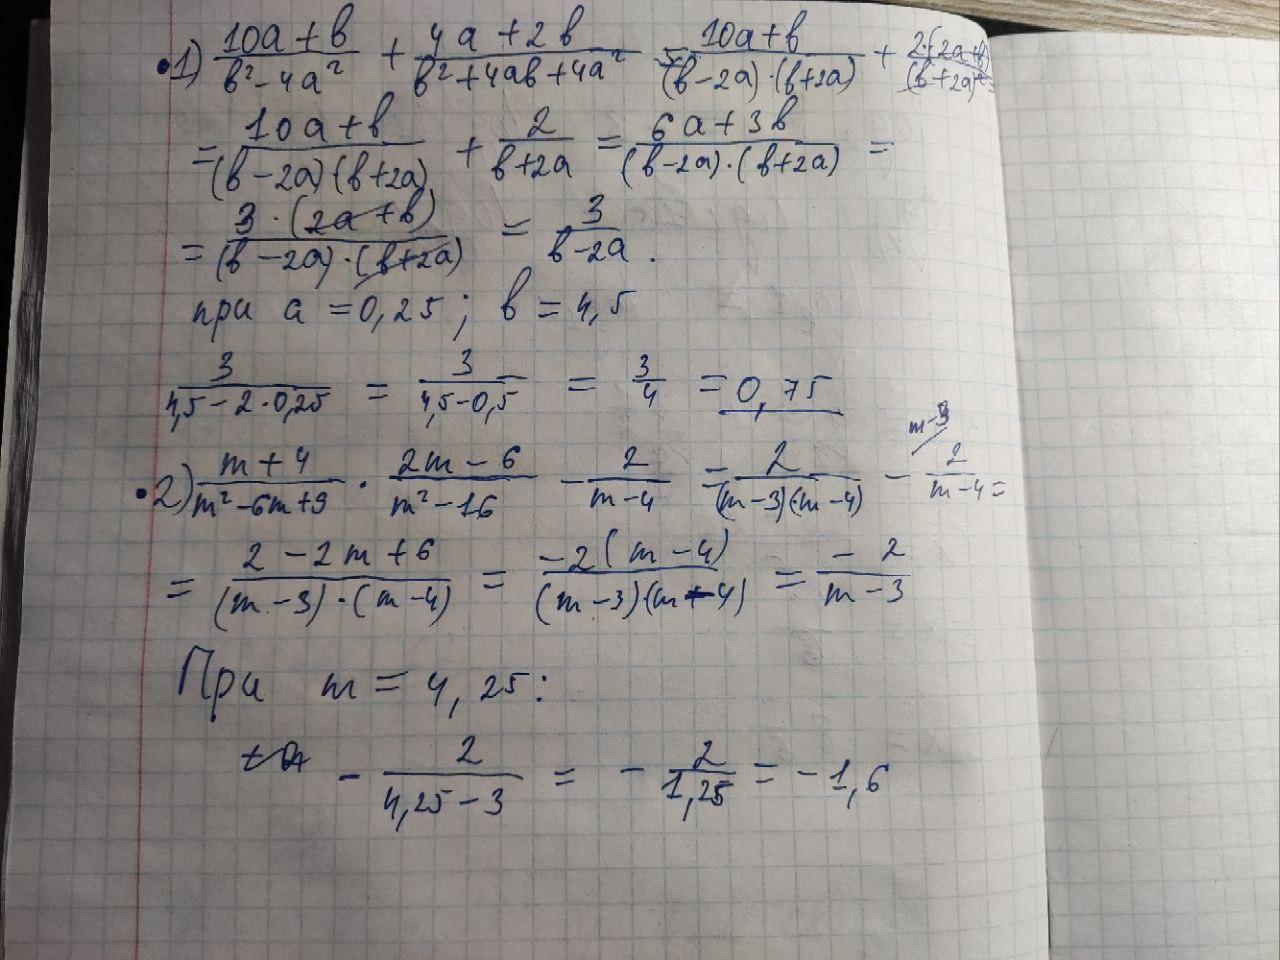 •1) (10a+b)/(b²-4a²) + (4a+2b)/(b²+4ab+4a²) = (10a+b)/((b-2a)·(b+2a)) + (2·(2a+b))/((b+2a)²) =
= (10a+b)/((b-2a)(b+2a)) + 2/(b+2a) = (6a+3b)/((b-2a)·(b+2a)) =
= (3·(2a+b))/((b-2a)·(b+2a)) = 3/(b-2a).
при a = 0,25; b = 4,5
3/(4,5-2·0,25) = 3/(4,5-0,5) = 3/4 = 0,75
•2) (m+4)/(m²-6m+9) · (2m-6)/(m²-16) - 2/(m-4) = 2/((m-3)(m-4)) - m-3/ 2/(m-4) =
= (2-2m+6)/((m-3)·(m-4)) = (-2(m-4))/((m-3)·(m-4)) = (-2)/(m-3)
При m = 4,25:
- 2/(4,25-3) = - 2/1,25 = -1,6